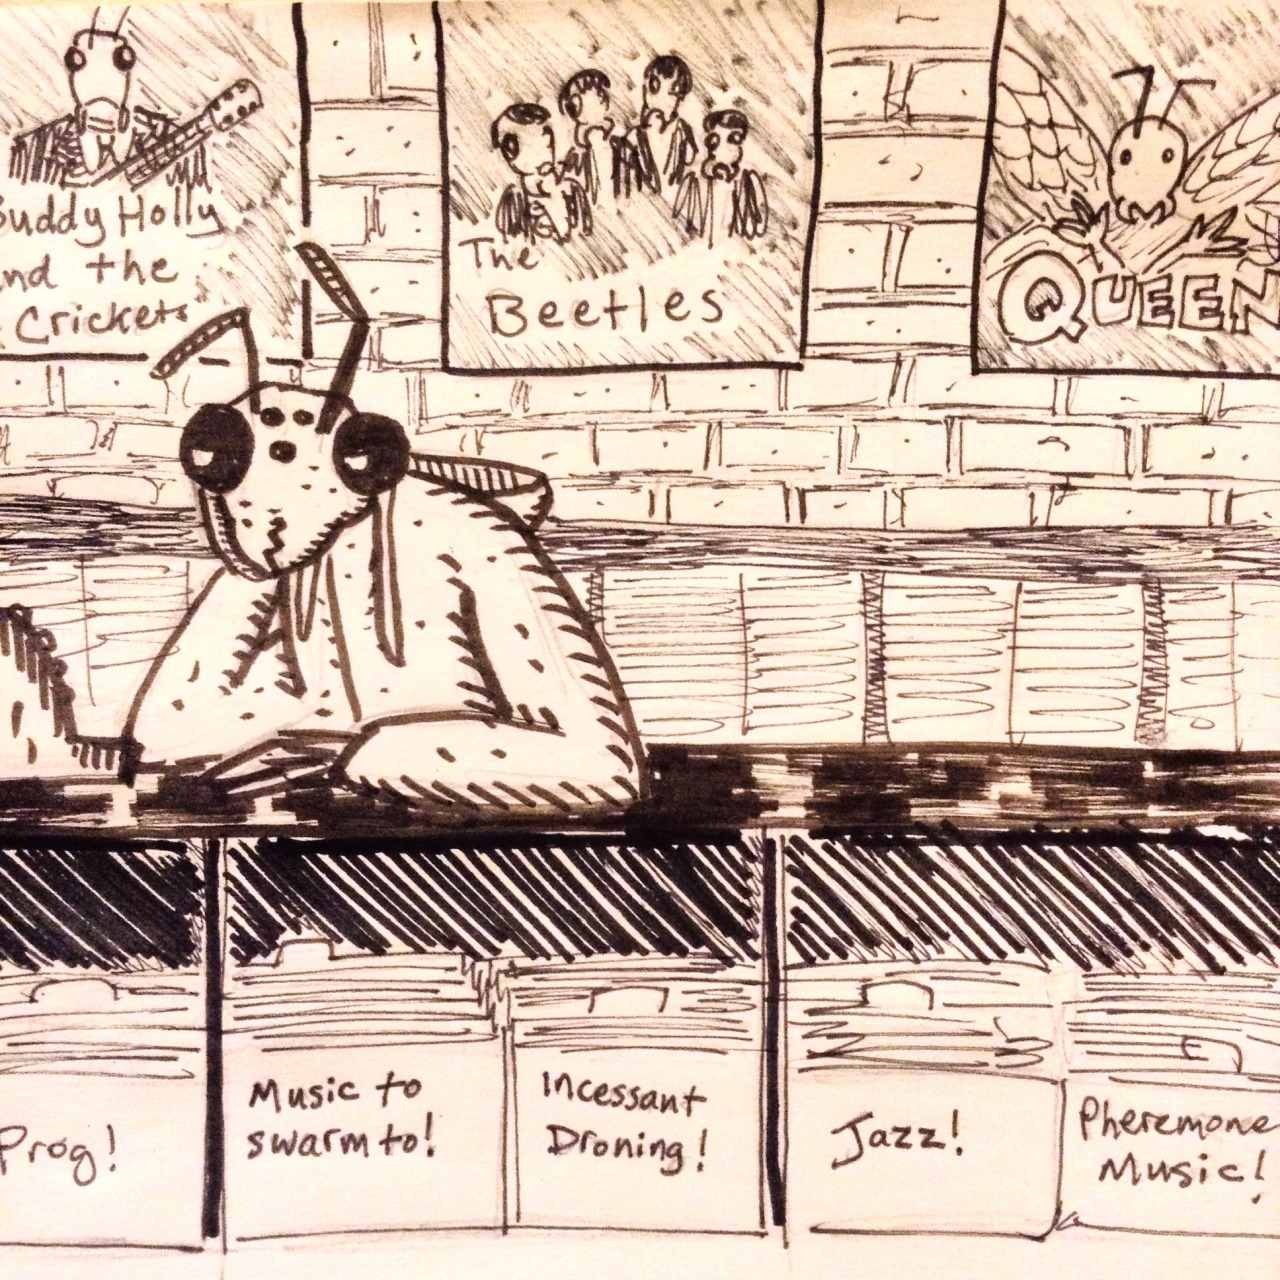 Buddy Holly
and the
Crickets
The
Beetles
QUEEN
Prog!
Music to
swarm to!
Incessant
Droning!
Jazz!
Pheremone
Music!